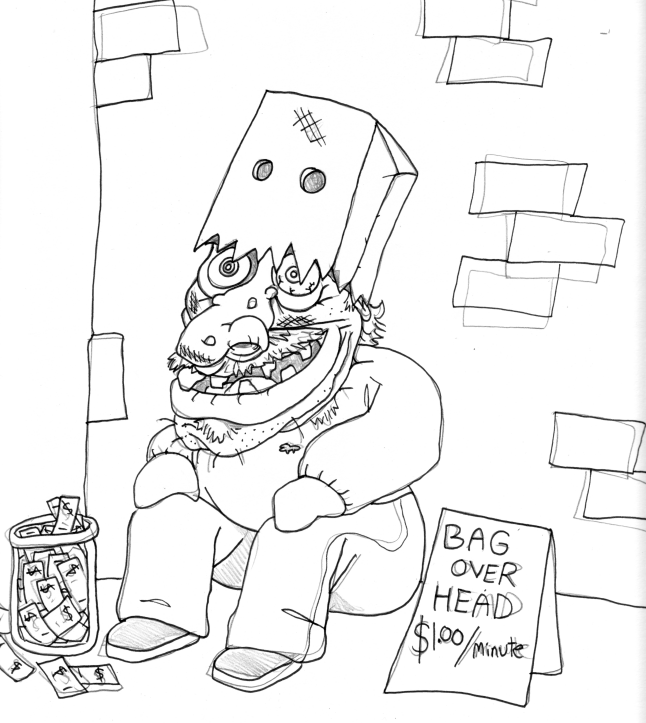 BAG
OVER
HEAD
$1.00/minute
$
$
$
$
$
$
$